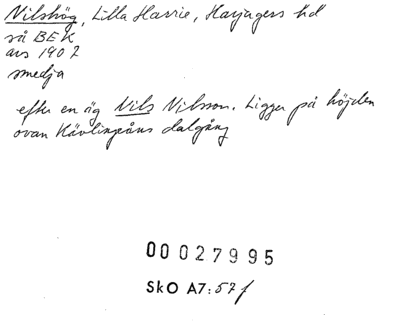 Nilshög, Lilla Harrie, Harjagers hd
så BEK
avs 1907
smedja
efter en äg Nils Nilsson. Ligger på höjden
ovan Kävlingeåns dalgång
00 027995
SkO A7:57f